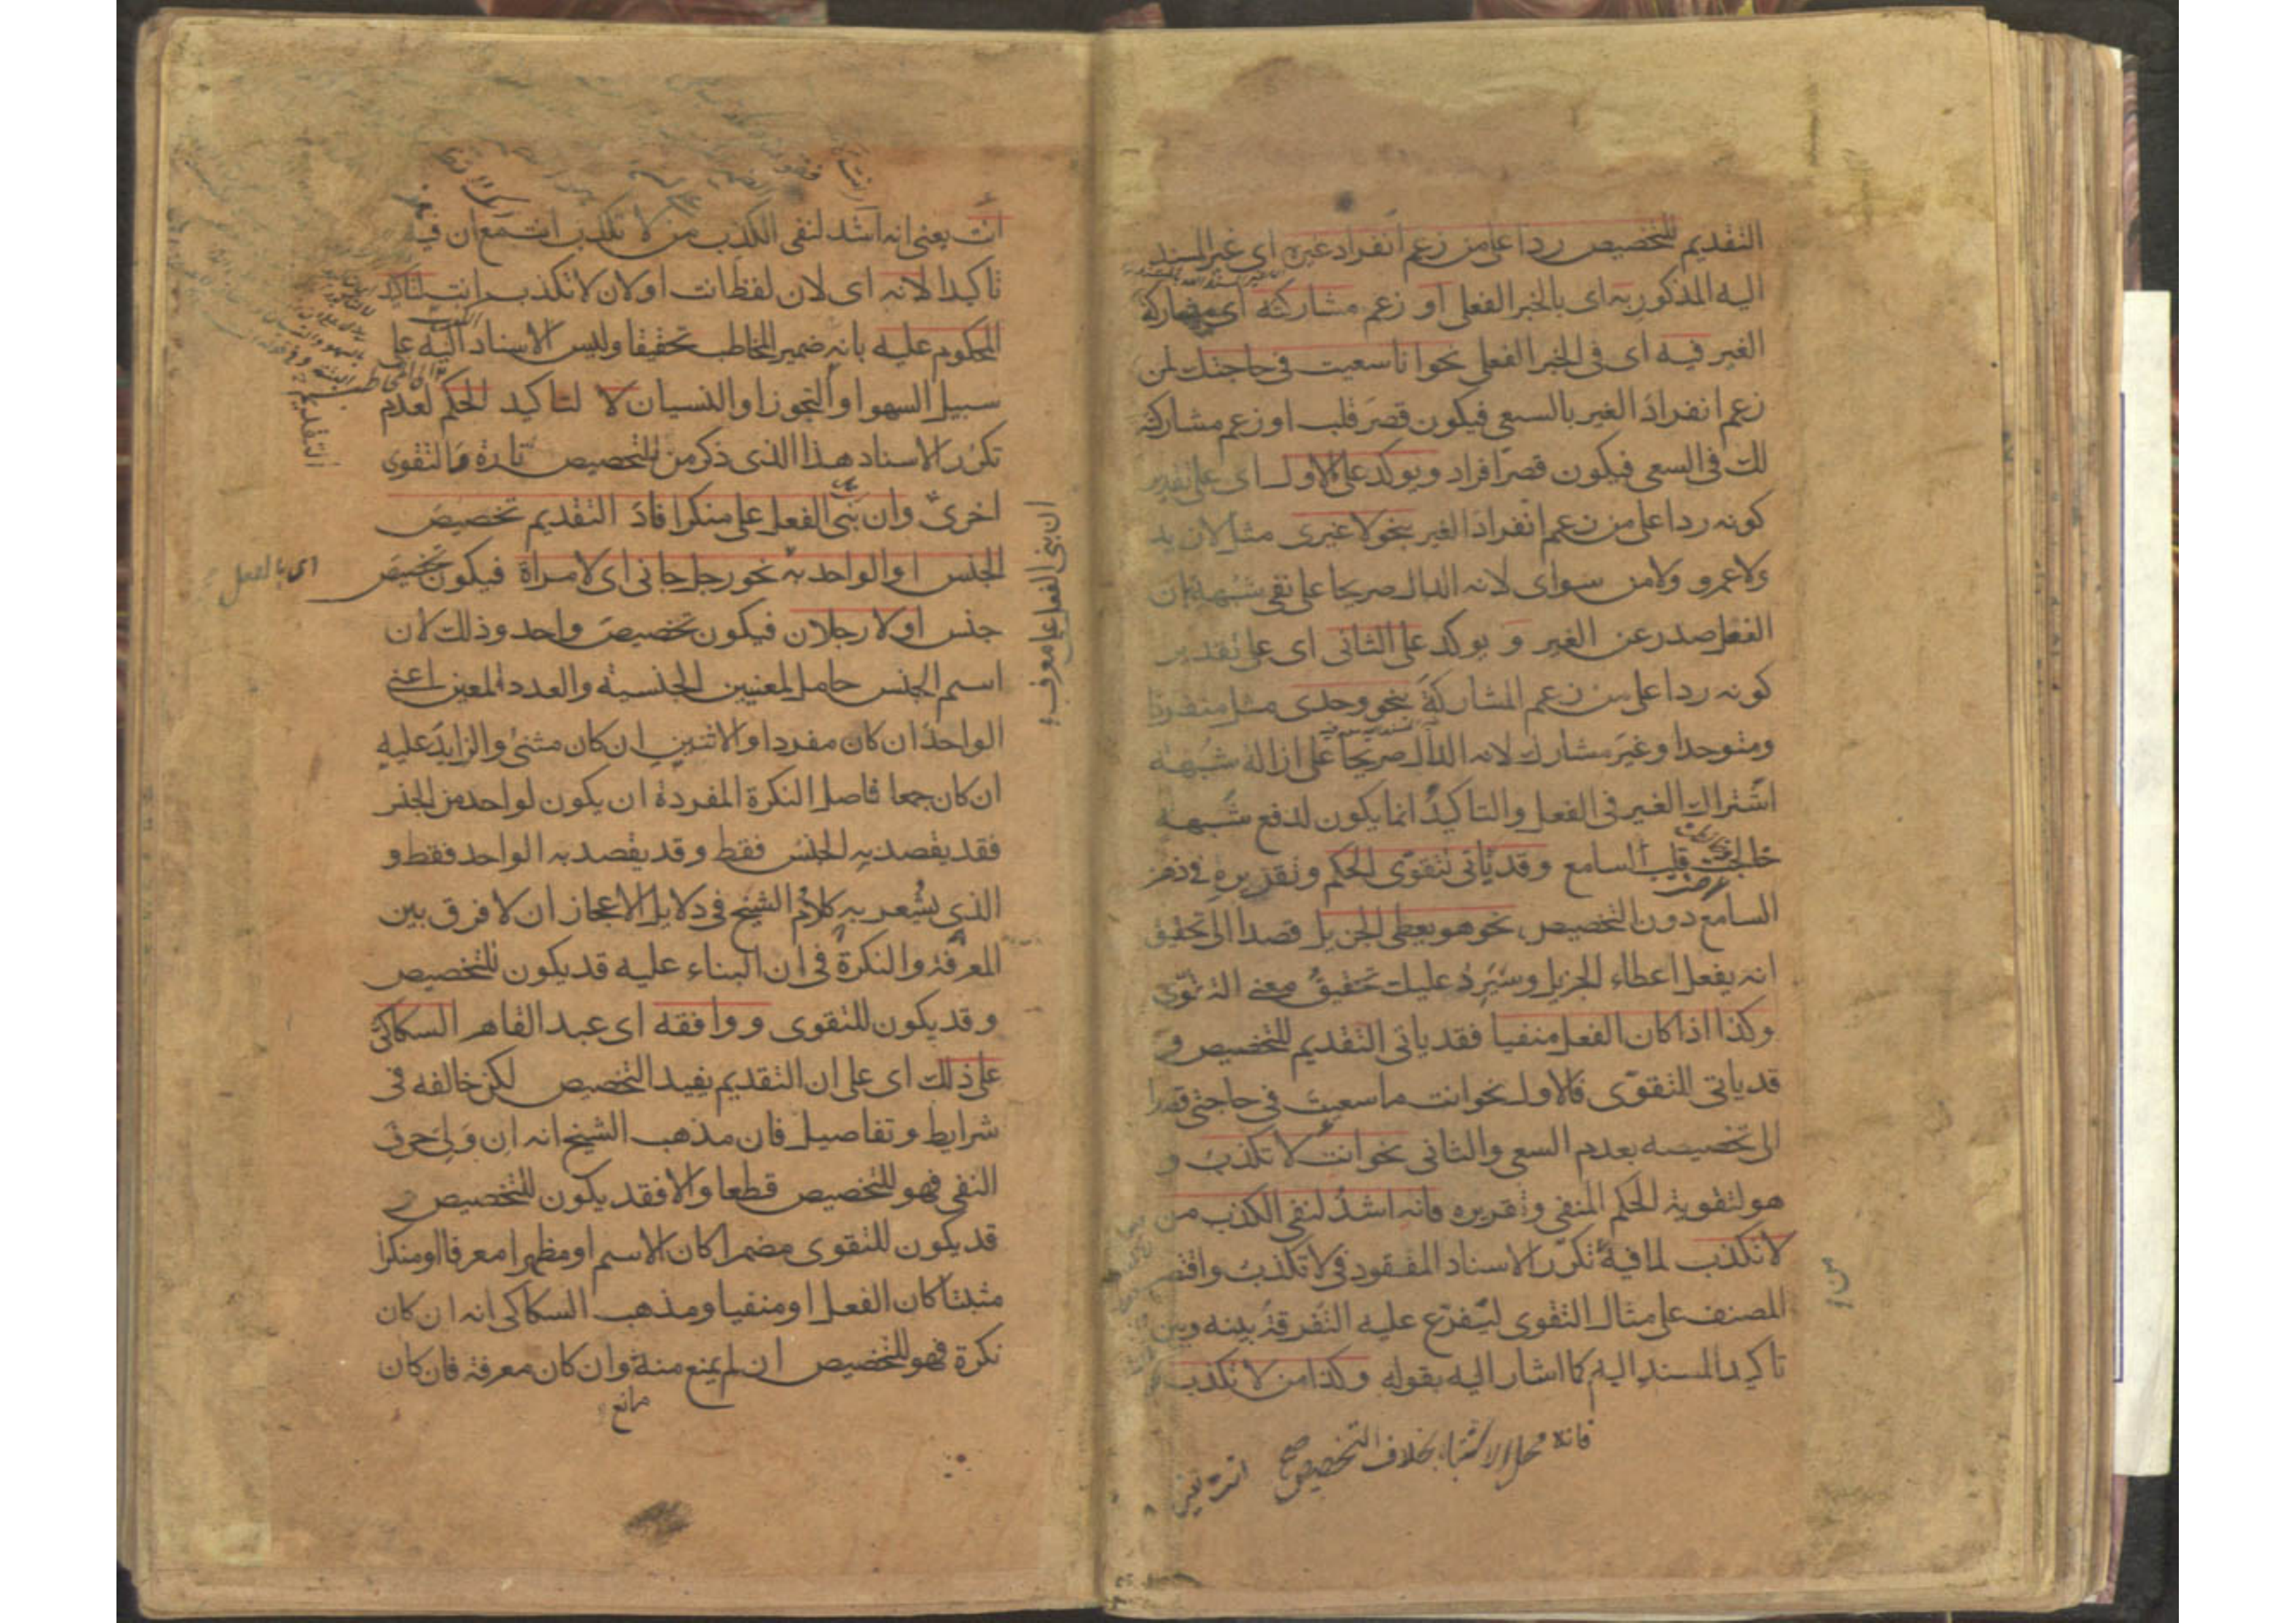 التقديم للتخصيص ردا على من زعم انفراد غيره اى غير المسند
اليه المذكور به اى بالخبر الفعلى او زعم مشاركته اى مشاركة
الغير فيه اى فى الخبر الفعلى نحو انا سعيت فى حاجتك لمن
زعم انفراد الغير بالسعى فيكون قصر قلب او زعم مشاركته
لك فى السعى فيكون قصر افراد ويوكد على الاول اى على تقدير
كونه ردا على من زعم انفراد الغير بنحو لا غيرى مثل لا زيد
ولا عمرو ولا من سواى لانه الدال صريحا على نفى شبهة ان
الفعل صدر عن الغير و يوكد على الثانى اى على تقدير
كونه ردا على من زعم المشاركة بنحو وحدى مثل منفردا
ومتوحدا وغير مشارك لانه الدال صريحا على ازالة شبهة
اشتراك الغير فى الفعل والتاكيد انما يكون لدفع شبهة
خالجت قلب السامع وقد ياتى لتقوى الحكم وتقريره فى ذهن
السامع دون التخصيص نحو هو يعطى الجزيل قصدا الى تحقيق
انه يفعل اعطاء الجزيل وسيرد عليك تحقيق معنى التقوى
وكذا اذا كان الفعل منفيا فقد ياتى التقديم للتخصيص و
قد ياتى للتقوى فالاول نحو انت ما سعيت فى حاجتى قصدا
الى تخصيصه بعدم السعى والثانى نحو انت لا تكذب و
هو لتقوية الحكم المنفى وتقريره فانه اشد لنفى الكذب من
لا تكذب لما فيه تكرر الاسناد المفقود فى لا تكذب واقتصر
المصنف على مثال التقوى ليفرع عليه التفرقة بينه وبين
تاكيد المسند اليه كما اشار اليه بقوله وكذا من لا تكذب
فانه محل الاشتباه بخلاف التخصيص صح
انت يعنى
انت يعنى انه اشد لنفى الكذب من لا تكذب انت مع ان فيه
تاكيدا لانه اى لان لفظ انت او لان لا تكذب انت لتاكيد
المحكوم عليه بانه ضمير المخاطب تحقيقا وليس الاسناد اليه على
سبيل السهو او التجوز او النسيان لا لتاكيد الحكم لعدم
تكرر الاسناد هذا الذى ذكر من للتخصيص تارة والتقوى
اخرى وان بنى الفعل على منكر افاد التقديم تخصيص
الجنس او الواحد به نحو رجل جانى اى لا مراة فيكون تخصيص
جنس او لا رجلان فيكون تخصيص واحد وذلك لان
اسم الجنس حامل لمعنيين الجنسية والعدد المعين اعنى
الواحد ان كان مفردا والاثنين ان كان مثنى والزايد عليه
ان كان جمعا فاصل النكرة المفردة ان يكون لواحد من الجنس
فقد يقصد به الجنس فقط وقد يقصد به الواحد فقط و
الذى يشعر به كلام الشيخ فى دلايل الاعجاز ان لا فرق بين
المعرفة والنكرة فى ان البناء عليه قد يكون للتخصيص
وقد يكون للتقوى ووافقه اى عبد القاهر السكاكى
على ذلك اى على ان التقديم يفيد التخصيص لكن خالفه فى
شرايط وتفاصيل فان مذهب الشيخ انه ان ولى حرف
النفى فهو للتخصيص قطعا والا فقد يكون للتخصيص و
قد يكون للتقوى مضمرا كان الاسم او مظهرا معرفا او منكرا
مثبتا كان الفعل او منفيا ومذهب السكاكى انه ان كان
نكرة فهو للتخصيص ان لم يمنع منه وان كان معرفة فان كان
مانع
ان بنى الفعل على معرف
اى بالفعل